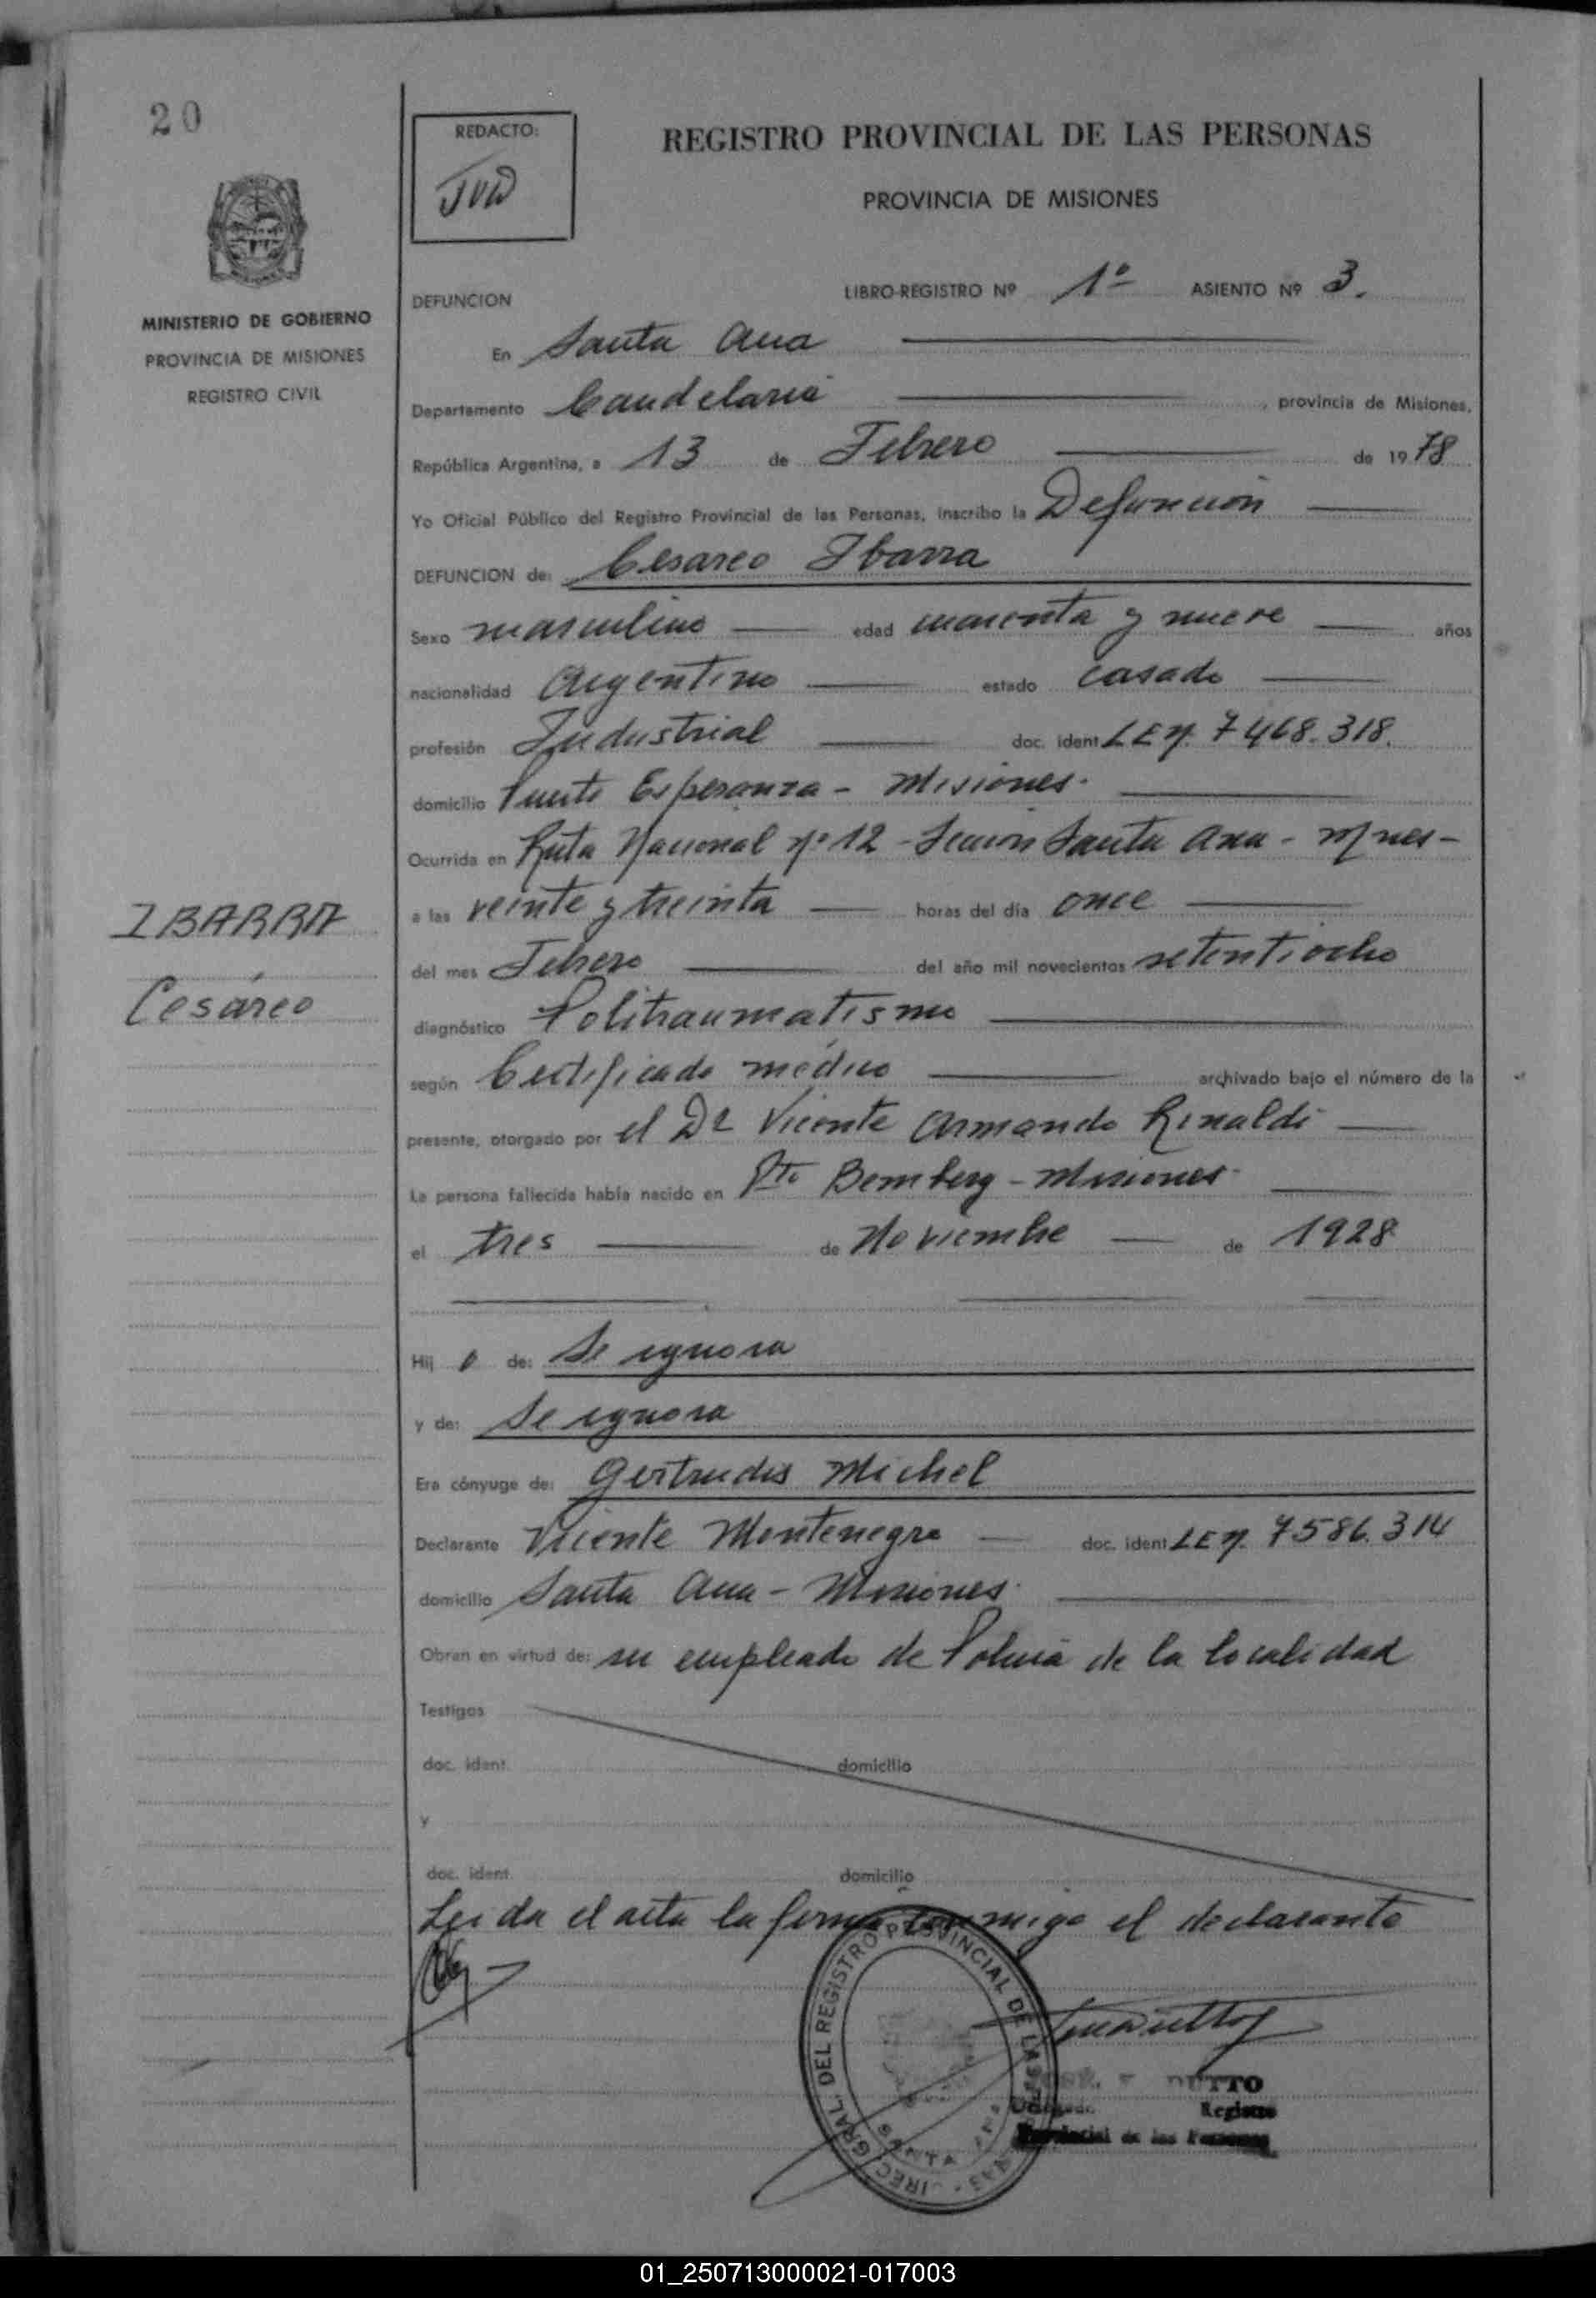 20
REDACTO:
REGISTRO PROVINCIAL DE LAS PERSONAS
PROVINCIA DE MISIONES
MINISTERIO DE GOBIERNO
PROVINCIA DE MISIONES
REGISTRO CIVIL
IBARRA
Cesáreo
DEFUNCION LIBRO-REGISTRO Nº 1º ASIENTO Nº 3.
En Santa Ana
Departamento Candelaria , provincia de Misiones,
República Argentina, a 13 de Febrero de 1978
Yo Oficial Público del Registro Provincial de las Personas, inscribo la Defuncion
DEFUNCION de: Cesareo Ibarra
Sexo masculino edad cuarenta y nueve años
nacionalidad Argentino estado casado
profesión Industrial doc. ident. LEN. 7468.318.
domicilio Puerto Esperanza - Misiones.
Ocurrida en Ruta Nacional Nº 12 - Seccion Santa Ana - Mnes -
a las veinte y treinta horas del día once
del mes Febrero del año mil novecientos setentiocho
diagnóstico Politraumatismo
según Certificado médico archivado bajo el número de la
presente, otorgado por el Dr Vicente Armando Rinaldi
La persona fallecida había nacido en Pto Bemberg - Misiones
el tres de Noviembre de 1928
Hij o de: Se ignora
y de: Se ignora
Era cónyuge de: Gertrudis Michel
Declarante Vicente Montenegro doc. ident. LEN. 7586.314
domicilio Santa Ana - Misiones.
Obran en virtud de: su empleado de Policia de la localidad
Testigos
doc. ident. domicilio
y
doc. ident. domicilio
Leida el acta la firma conmigo el declarante
DIREC. GRAL. DEL REGISTRO PROVINCIAL DE LAS PERSONAS
SANTA ANA
DUTTO
Registro
Provincial de las Personas
01_250713000021-017003